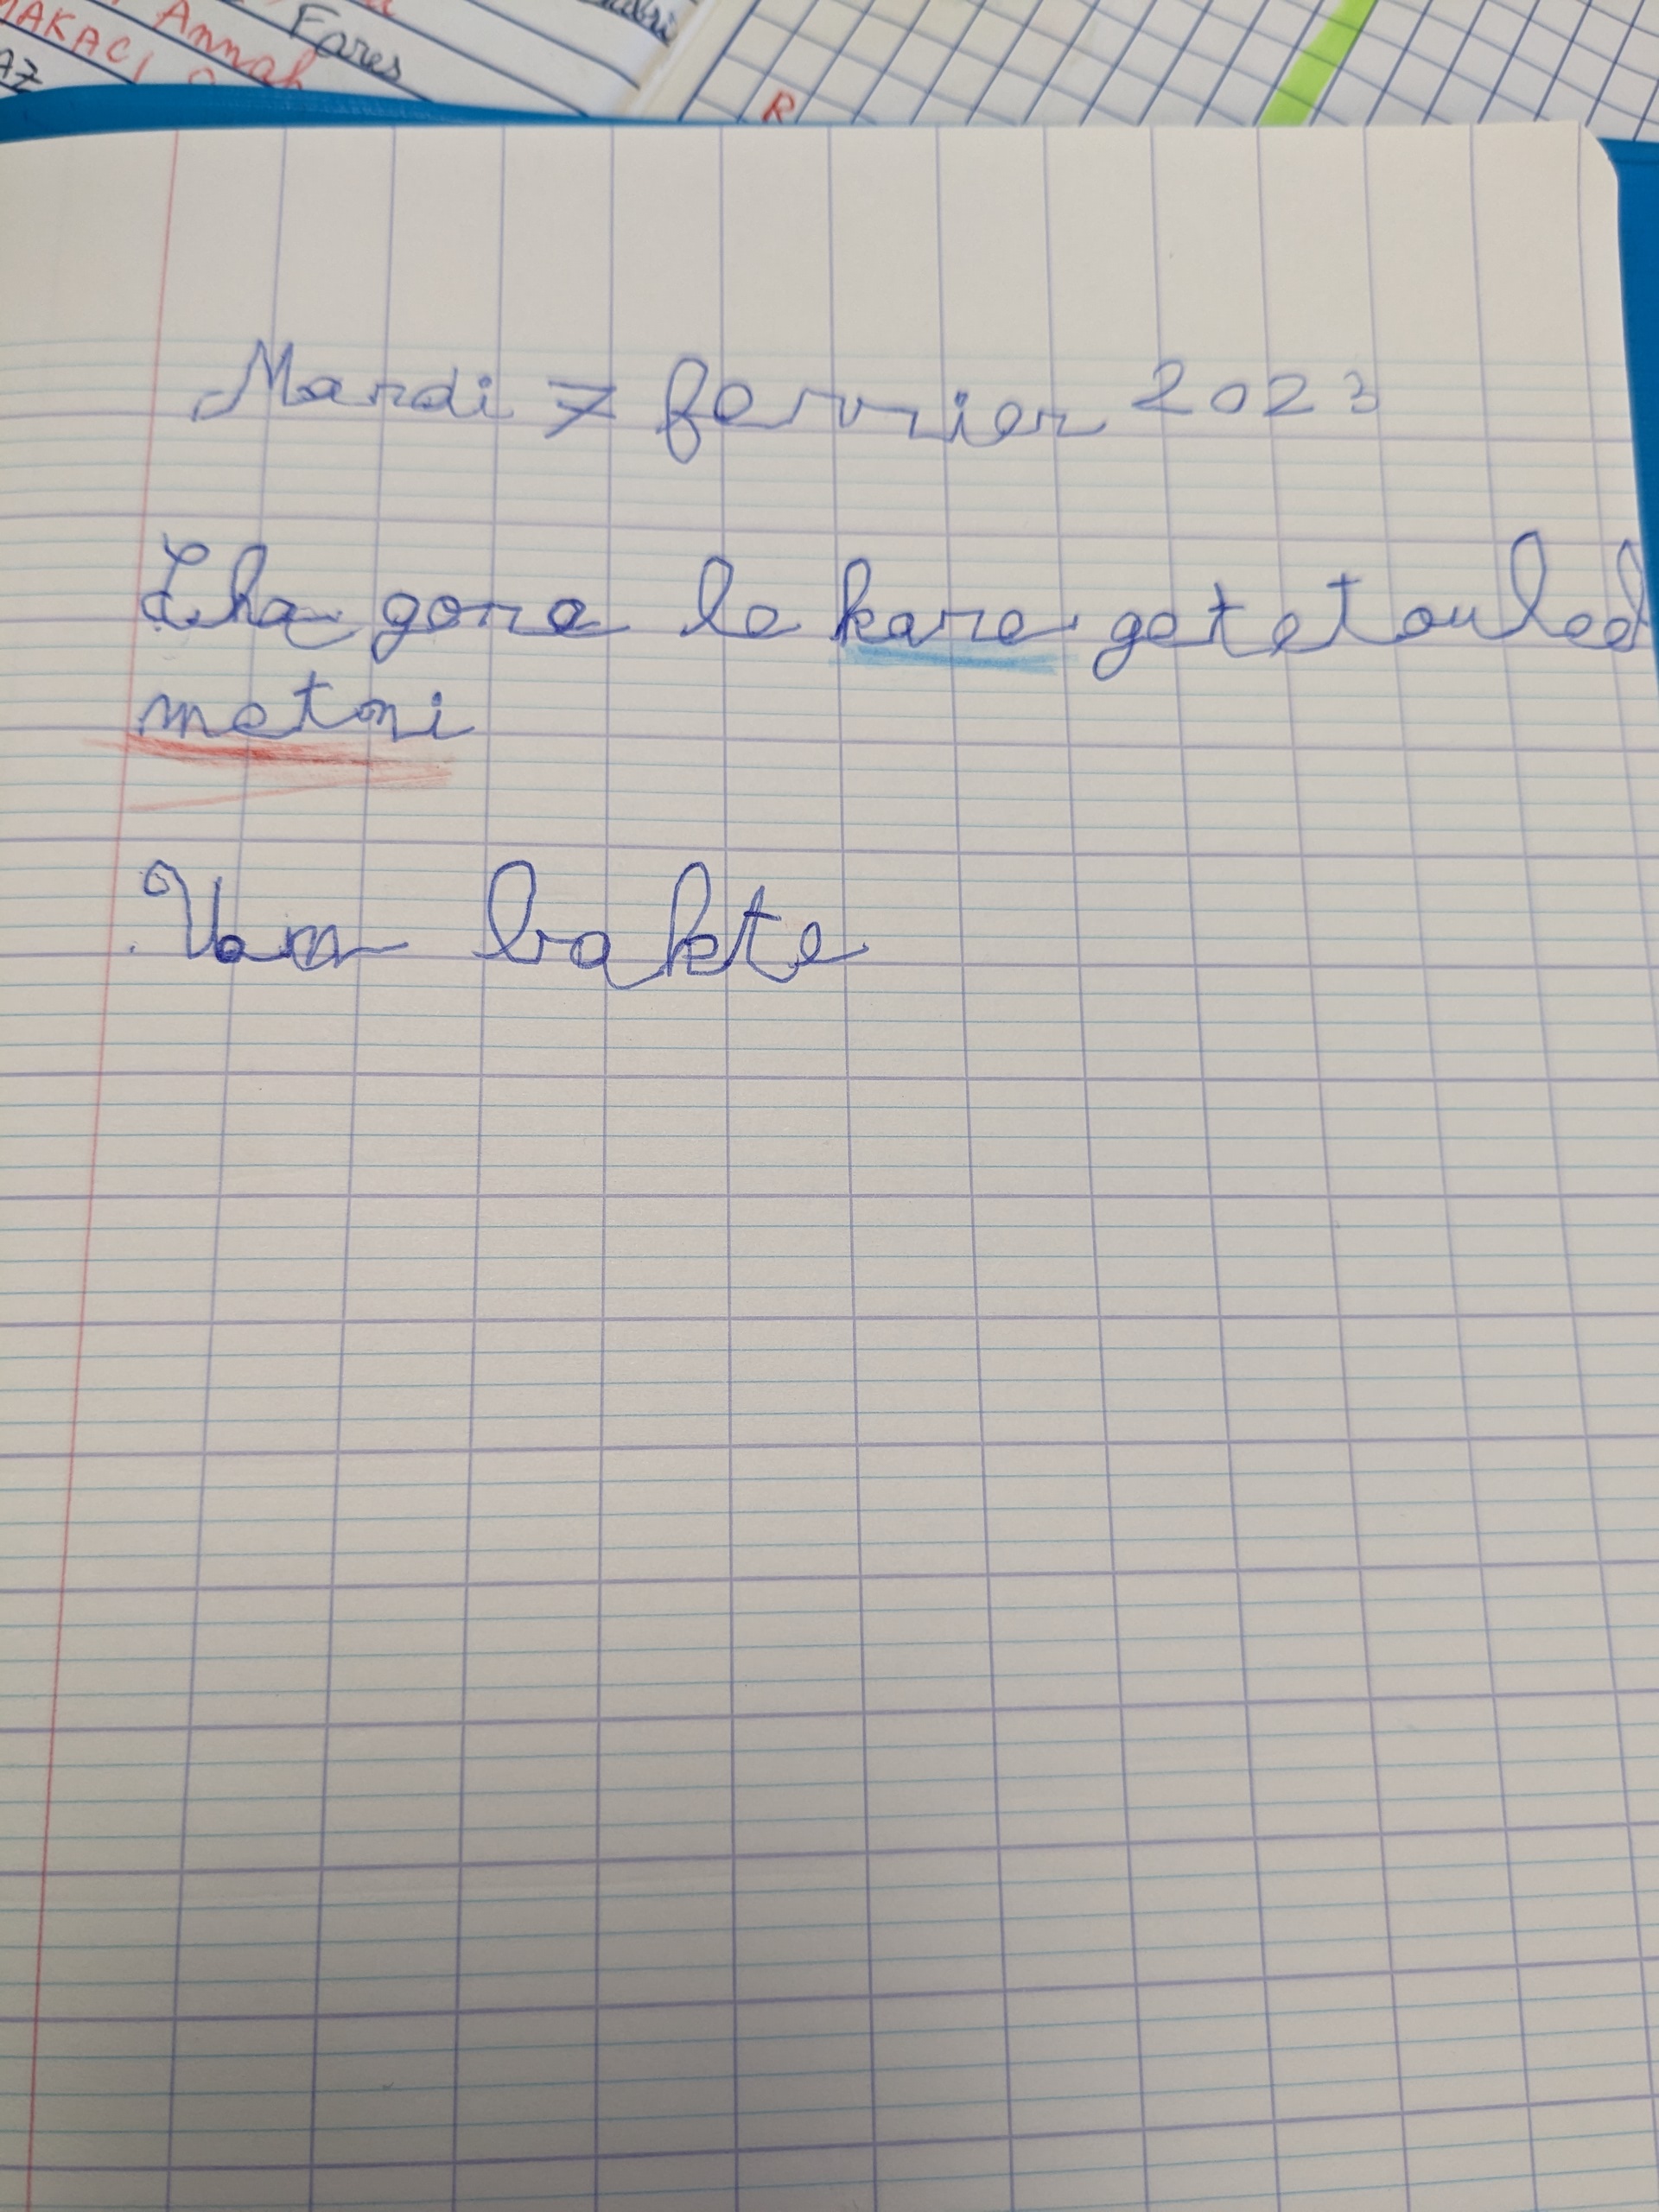 MAKACI Annah Fares
AZ
R
Mardi 7 fervrier 2023
Lha gore le kare getetouled
metni
Van bakte